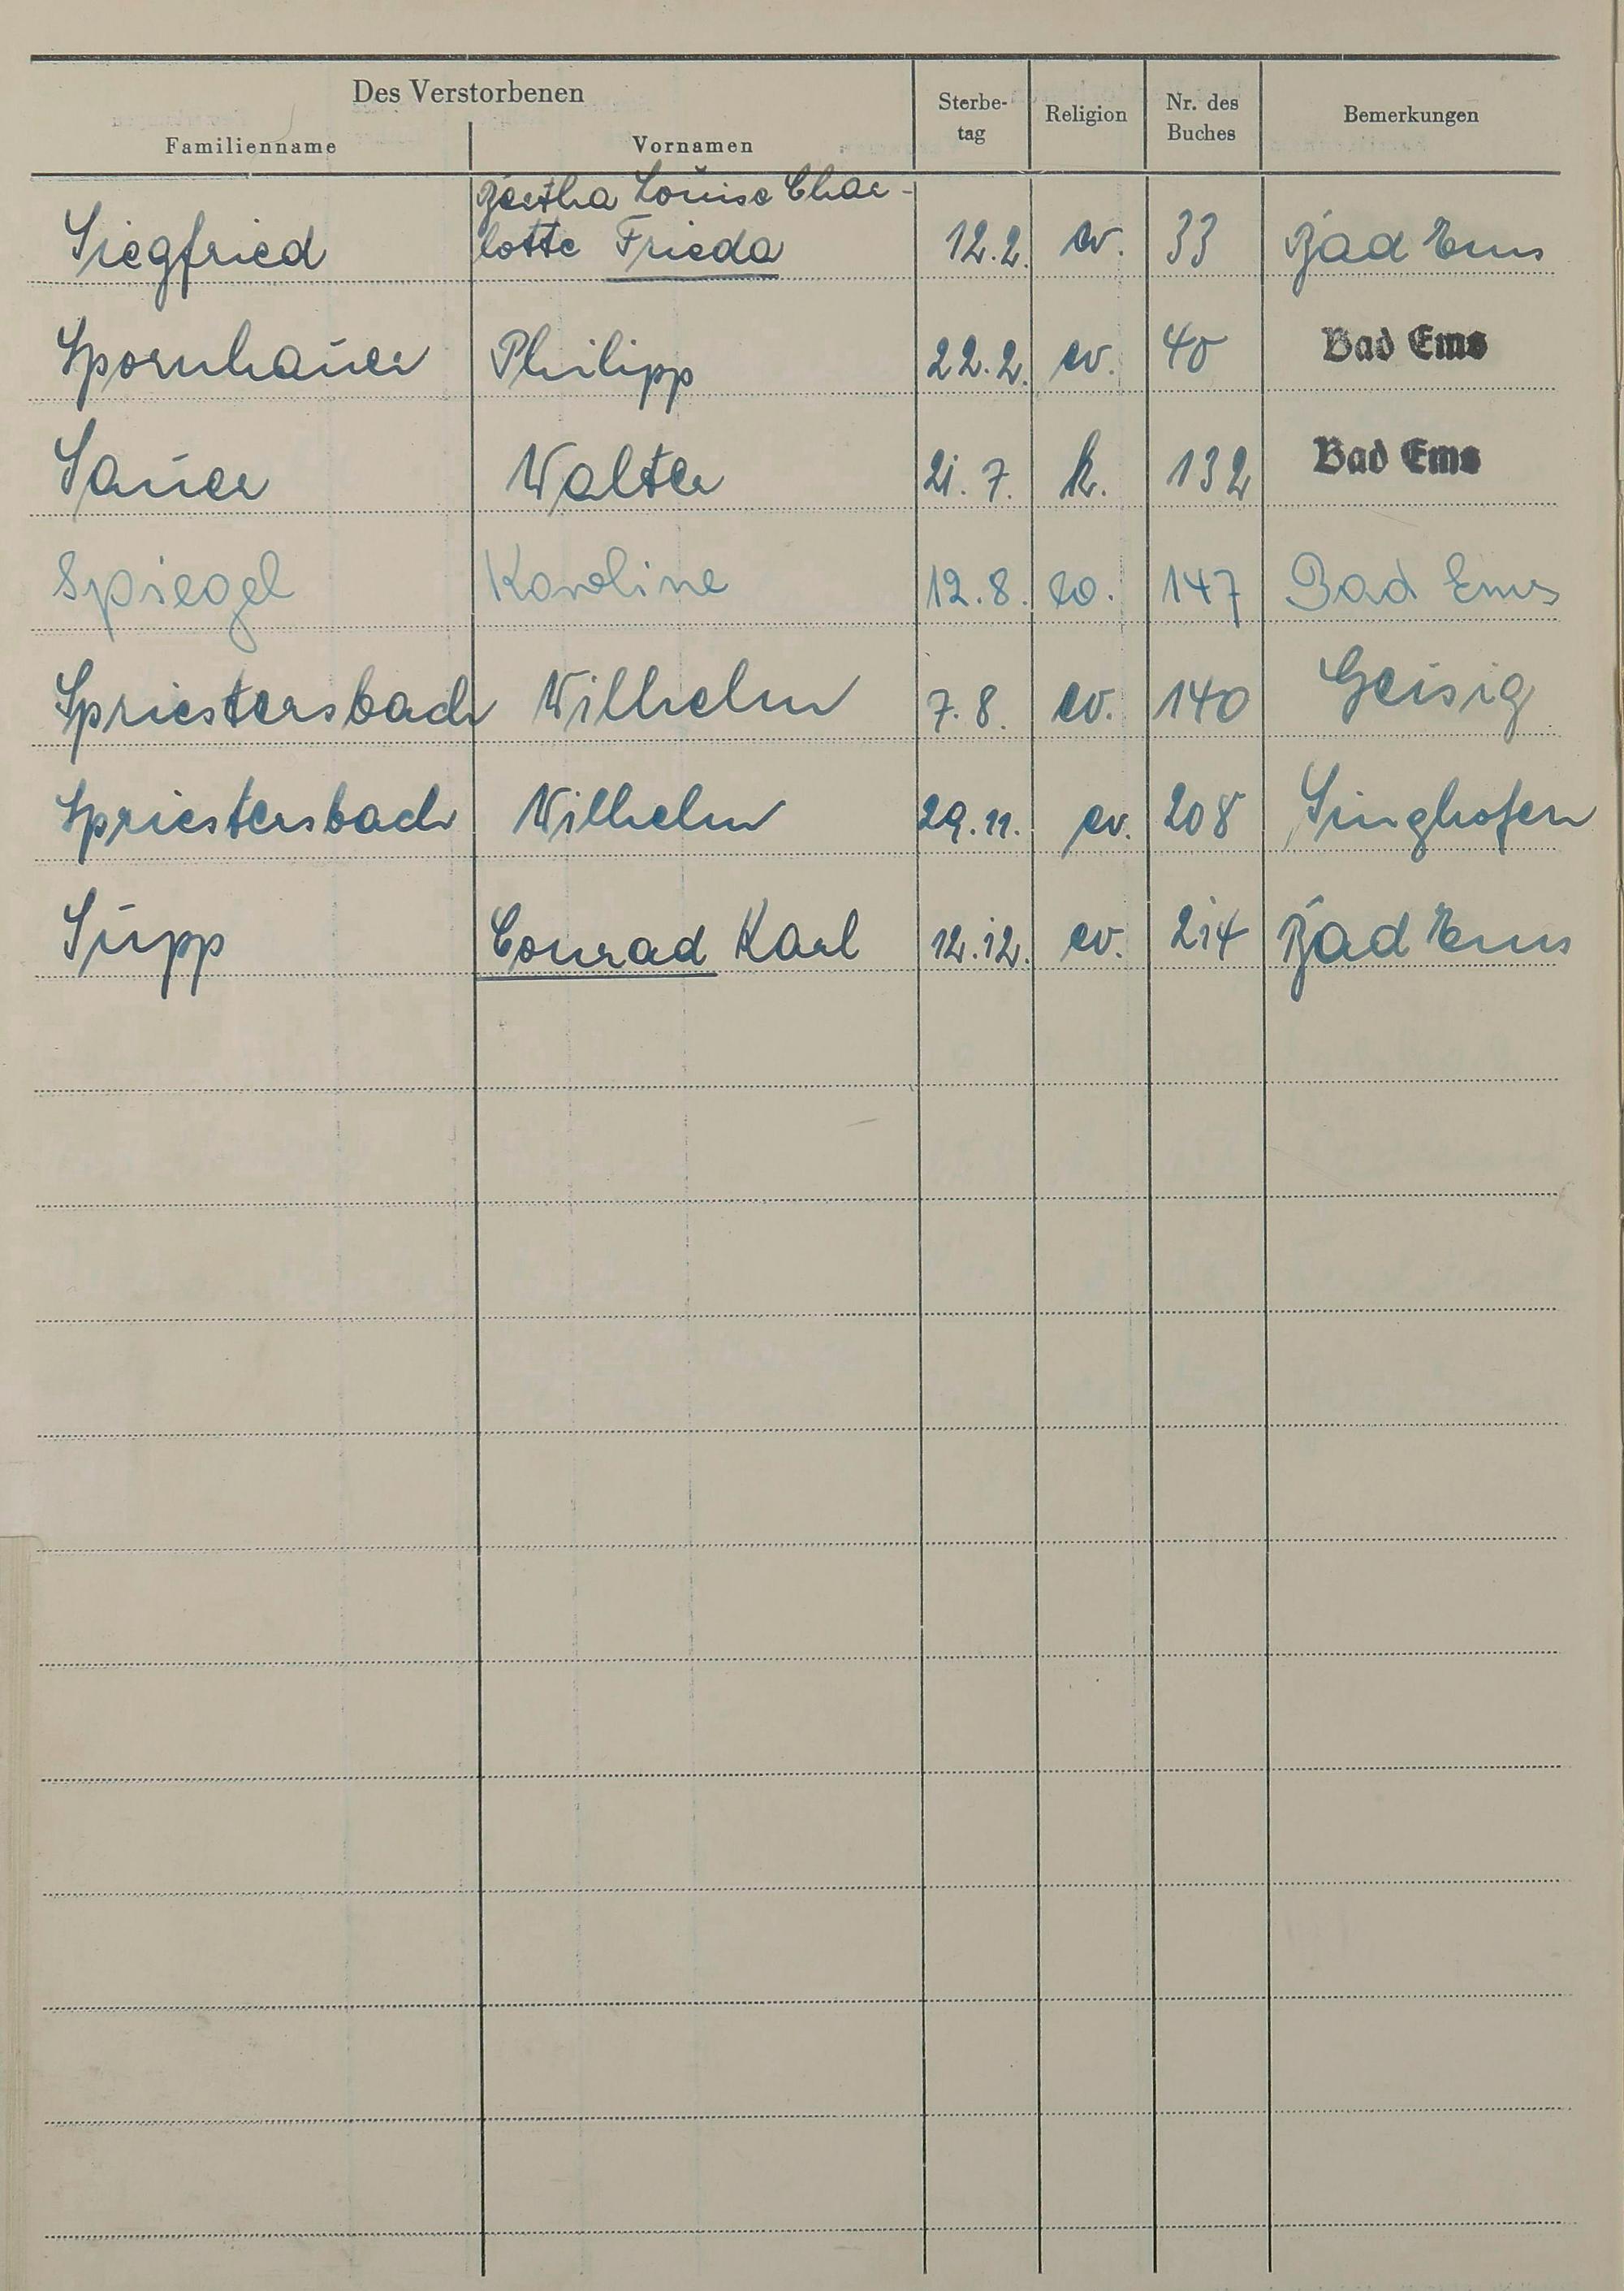 Des Verstorbenen
Familienname Vornamen Sterbe-tag Religion Nr. des Buches Bemerkungen
Bertha Louise Char-
Siegfried lotte Frieda 12.2. ev. 33 Bad Ems
Spornhauer Philipp 22.2. ev. 40 Bad Ems
Sauer Walter 21.7. k. 132 Bad Ems
Spiegel Karoline 12.8. ev. 147 Bad Ems
Spriestersbach Wilhelm 7.8. ev. 140 Geisig
Spriestersbach Wilhelm 29.11. ev. 208 Singhofen
Supp Conrad Karl 12.12. ev. 214 Bad Ems